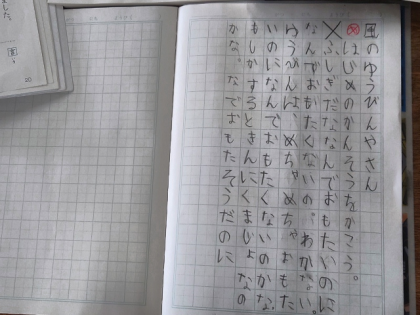 風のゆうびんやさん
め はじめのかんそうをかこう。
ふしぎだななんでおもたいのに
なんでおもたくないの。わかない。
ゆうびんは、めちゃめちゃおもた
いのになんでおもたくないのかな。
もしかするときんにくまじょなの
かな。なでおもたそうだのに